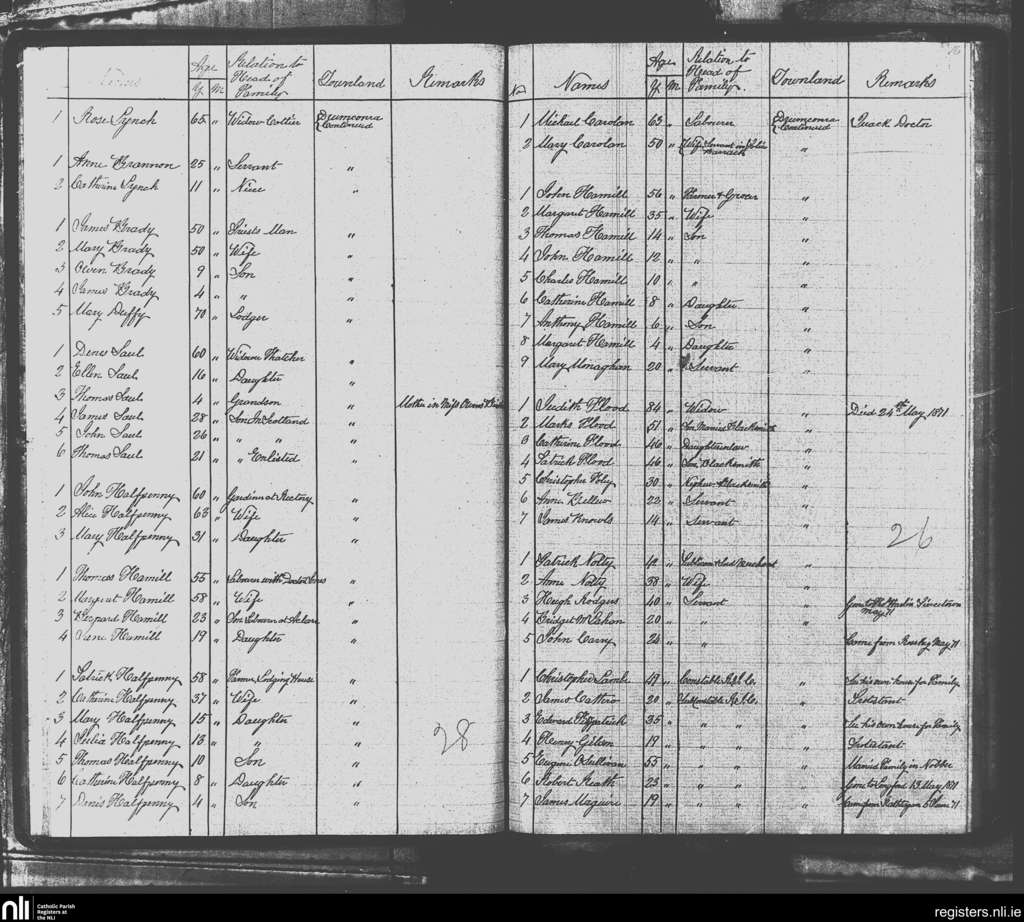 Names Age Relation to Head of Family Townland Remarks
Y. M.
1 Rose Lynch 65 " Widow Cottier Drumconra Continued
1 Anne Brannon 25 " Servant "
2 Catherine Lynch 11 " Niece "
1 James Brady 50 " Priests Man "
2 Mary Brady 50 " Wife "
3 Owen Brady 9 " Son "
4 James Brady 4 " " "
5 Mary Duffy 70 " Lodger "
1 Denis Saul 60 " Widower Thatcher "
2 Ellen Saul 16 " Daughter "
3 Thomas Saul 4 " Grandson " Mother in Miss
4 James Saul 28 " Son In Scotland "
5 John Saul 26 " " " "
6 Thomas Saul 21 " " Enlisted "
1 John Halfpenny 60 " Gardiner at Rectory "
2 Alice Halfpenny 63 " Wife "
3 Mary Halfpenny 31 " Daughter "
1 Thomas Hamill 55 " Labourer with Doctor "
2 Margaret Hamill 58 " Wife "
3 Hamill 23 " Son Labourer at "
4 Hamill 19 " Daughter "
1 Patrick Halfpenny 58 " Farmer Lodging House "
2 Catherine Halfpenny 37 " Wife "
3 Mary Halfpenny 15 " Daughter "
4 Julia Halfpenny 13 " " "
5 Thomas Halfpenny 10 Son "
6 Catherine Halfpenny 8 " Daughter "
7 Denis Halfpenny 4 " Son "
28
No Names Age Relation to Head of Family. Townland Remarks
Y. M.
1 Michael Carolan 63 " Labourer Drumconra Continued Quack Doctor
2 Mary Carolan 50 " Wife Servant in Police Barrack "
1 John Hamill 56 " Farmer & Grocer "
2 Margaret Hamill 35 " Wife "
3 Thomas Hamill 14 " Son "
4 John Hamill 12 " " "
5 Charles Hamill 10 " " "
6 Catherine Hamill 8 " Daughter "
7 Anthony Hamill 6 " Son "
8 Margaret Hamill 4 " Daughter "
9 Mary Monaghan 20 " Servant "
1 Judith Flood 84 " Widow " Died 24th May 1871
2 Marks Flood 51 " Son Married Blacksmith "
3 Catherine Flood 46 " Daughterinlaw "
4 Patrick Flood 46 " Son, Blacksmith "
5 Christopher Foley 30 " Nephew Blacksmith "
6 Anne Bellew 22 " Servant "
7 James Knowls 14 " Servant "
26
1 Patrick Nolty 42 " Publican & Seed Merchant "
2 Anne Nolty 38 " Wife "
3 Hugh Rodgers 40 " Servant " Gone to May 71
4 Bridget McMahon 20 " " "
5 John Carry 24 " " Come from May 71
1 Christopher Lamb 49 " Constable R.I.C. " In his own house for Family
2 James 20 " SubConstable R.I.C. " Protestant
3 Edward Fitzpatrick 35 " " " In his own house for Family
4 Henry 19 " " " " Protestant
5 Eugene OSullivan 55 " " " " Married Family in Nobber
6 Robert Heath 23 " " " " Gone to Longford 13 May 1871
7 James Maguire 19 " " " " Came from 5 June 71
nli
Catholic Parish
Registers at
the NLI
registers.nli.ie